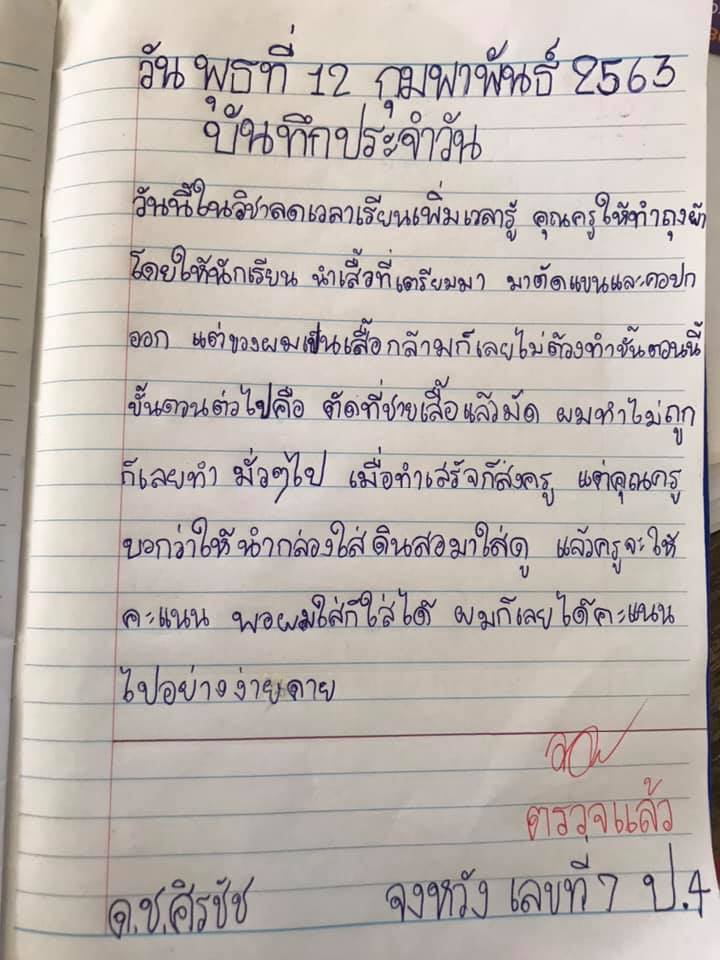 วันพุธที่ 12 กุมพาพันธ์ 2563
บันทึกประจำวัน
วันนี้ในวิชาลดเวลาเรียนเพิ่มเวลารู้ คุณครูให้ทำถุงผ้า
โดยให้นักเรียน นำเสื้อที่เตรียมมา มาตัดแขนและคอปก
ออก แต่ของผมเป็นเสื้อกล้ามก็เลยไม่ต้องทำขั้นตอนนี้
ขั้นตอนต่อไปคือ ตัดที่ชายเสื้อแล้วมัด ผมทำไม่ถูก
ก็เลยทำ มั่วๆไป เมื่อทำเสร็จก็ส่งครู แต่คุณครู
บอกว่าให้นำกล่องใส่ดินสอมาใส่ดู แล้วครูจะให้
คะแนน พอผมใส่ก็ใส่ได้ ผมก็เลยได้คะแนน
ไปอย่างง่ายดาย
ตรวจแล้ว
ด.ช.ศิรชัช จงหวัง เลขที่ 7 ป.4